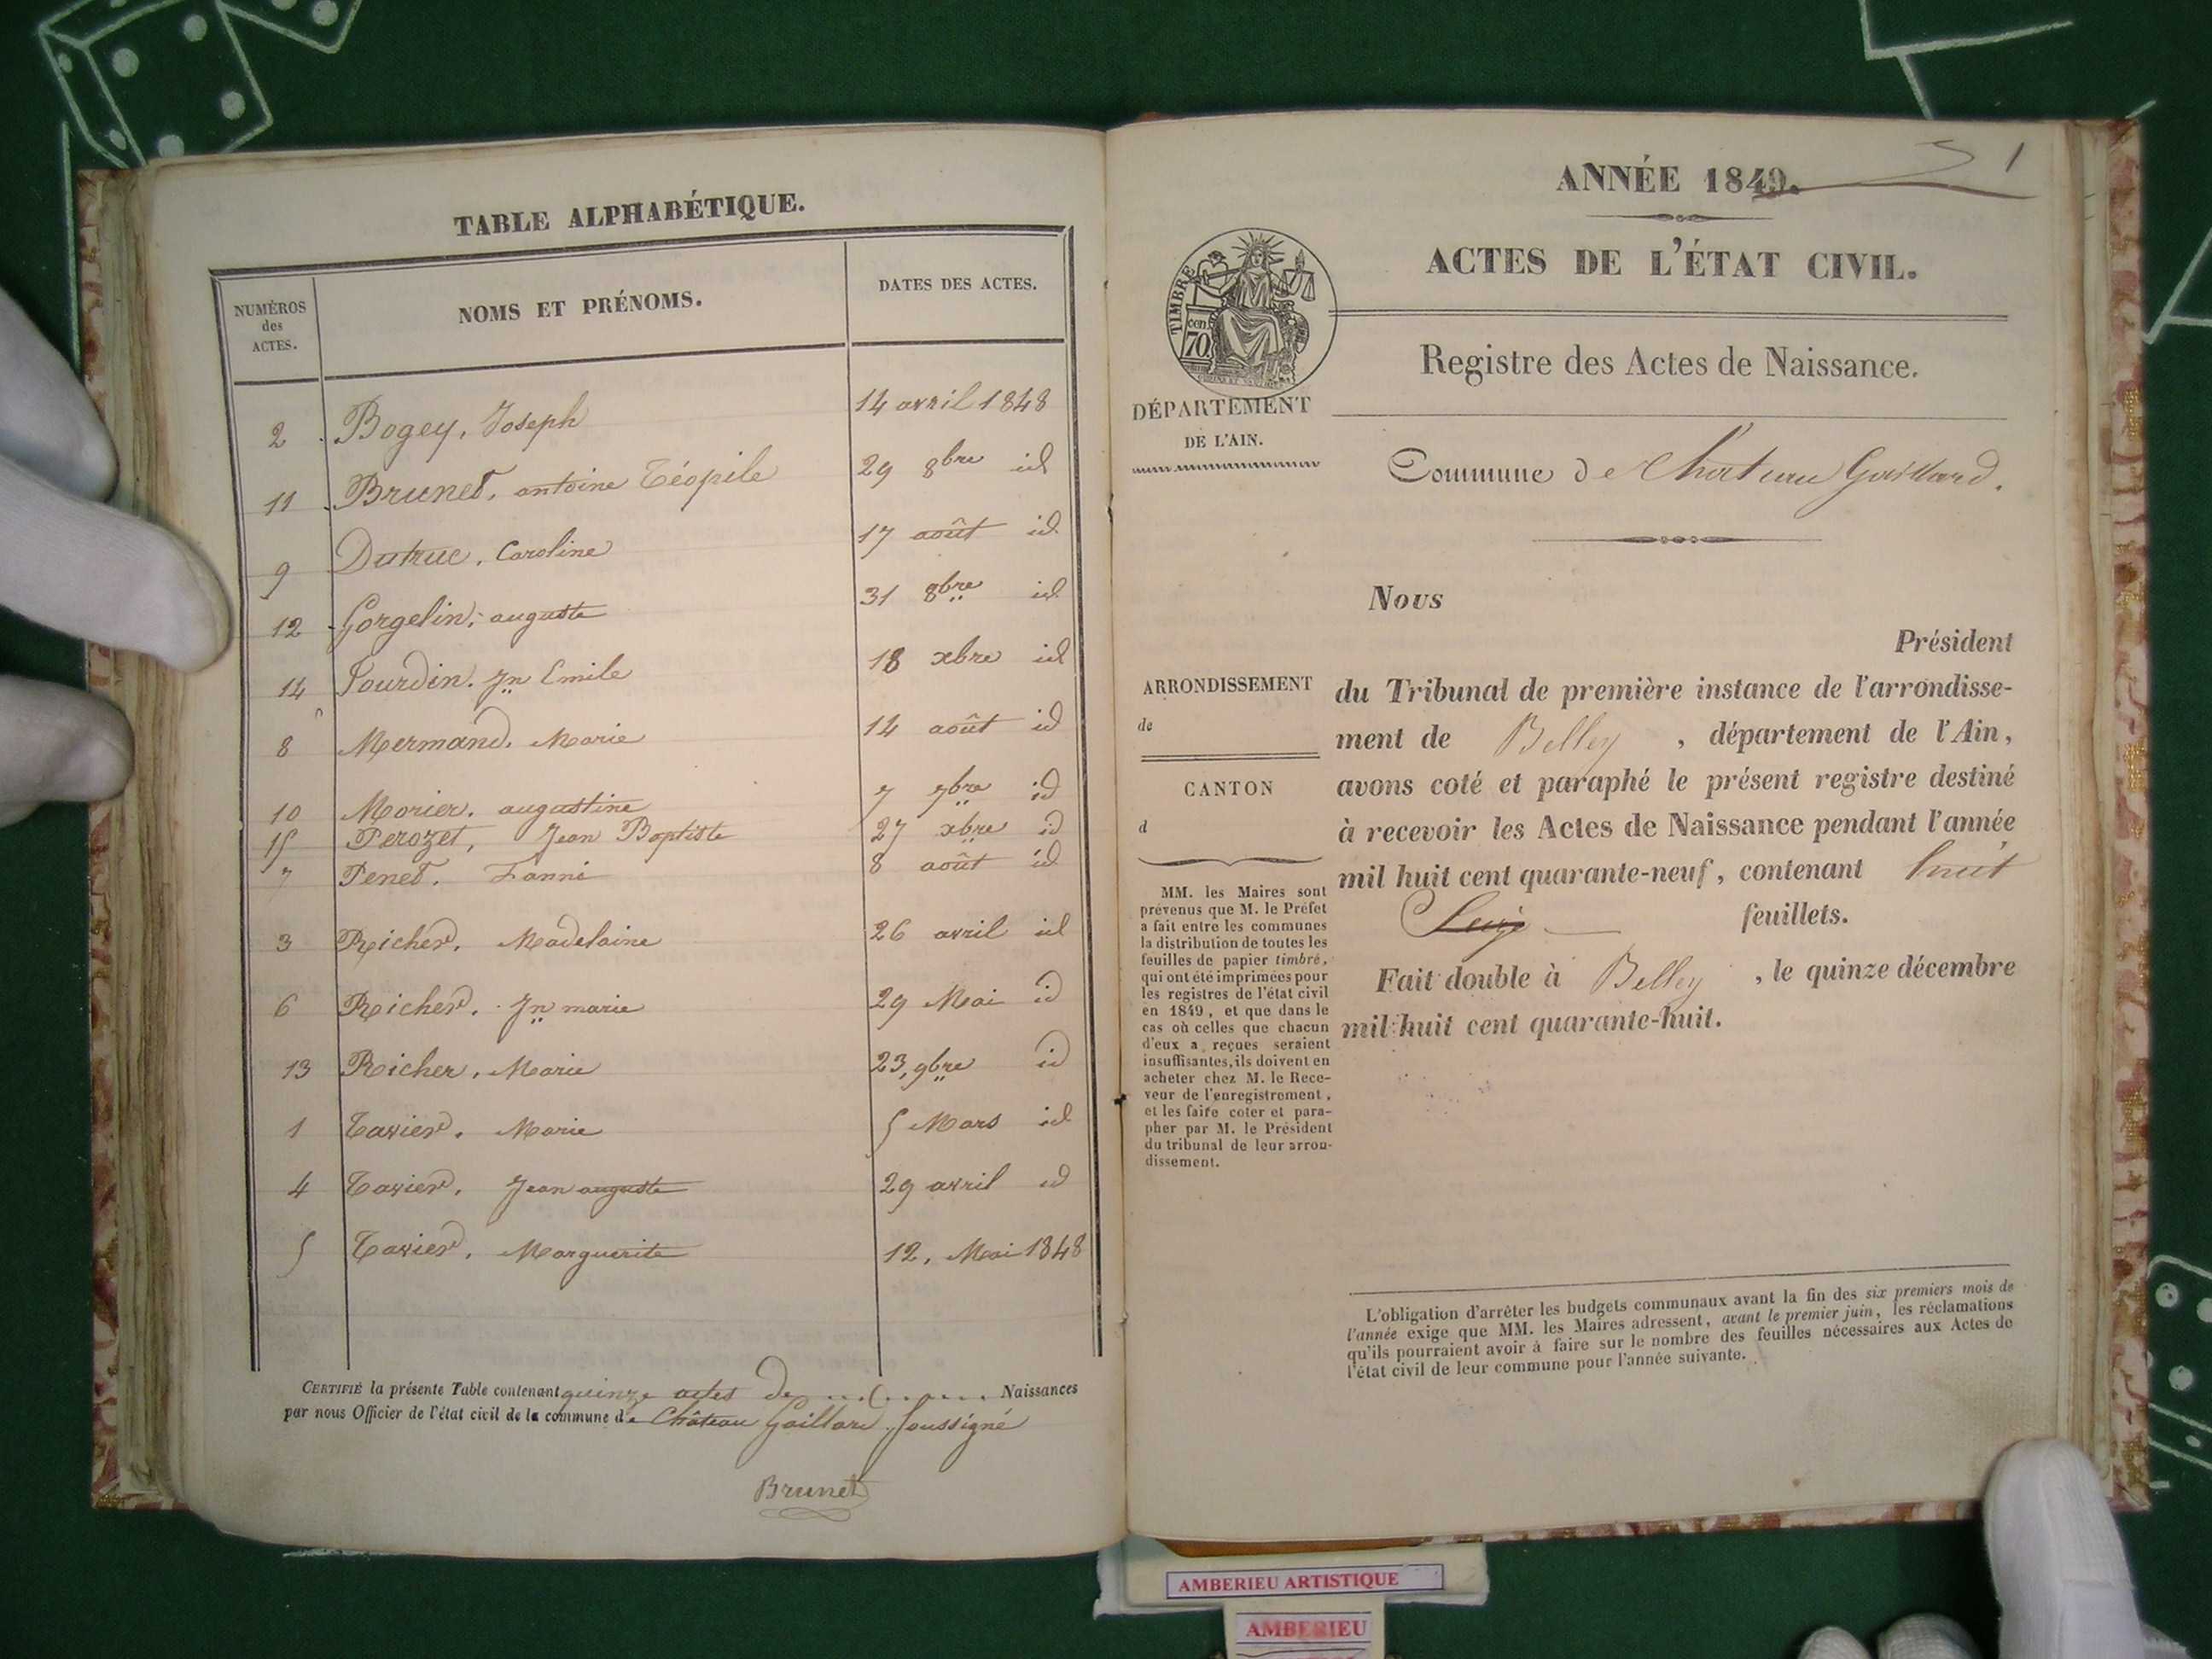 TABLE ALPHABÉTIQUE.
NUMÉROS
des
ACTES.
NOMS ET PRÉNOMS.
DATES DES ACTES.
2 Bogey, Joseph 14 avril 1848
11 Brunet, antoine Téopile 29 8bre id
9 Dutruc, Caroline 17 août id
12 Gorgelin, auguste 31 8bre id
14 Jourdin. Jn Emile 18 xbre id
8 Mermand, Marie 14 août id
10 Morier, augustine 7 7bre id
15 Perozet, Jean Baptiste 27 xbre id
7 Penet. Fanni 8 août id
3 Richerd, Madelaine 26 avril id
6 Richerd, Jn marie 29 Mai id
13 Richer, Marie 23, 9bre id
1 Tavierd, Marie 5 Mars id
4 Tavierd, Jean auguste 29 avril id
5 Tavierd, Marguerite 12, Mai 1848
CERTIFIÉ la présente Table contenant quinze actes de Naissances
par nous Officier de l'état civil de la commune de Château Gaillard, soussigné
Brunet
ANNÉE 1849.
51
ACTES DE L'ÉTAT CIVIL.
TIMBRE
cen.
70
Registre des Actes de Naissance.
DÉPARTEMENT
DE L'AIN.
Commune de Chateau Gaillard.
Nous
Président
du Tribunal de première instance de l'arrondisse-
ment de Belley, département de l'Ain,
avons coté et paraphé le présent registre destiné
à recevoir les Actes de Naissance pendant l'année
mil huit cent quarante-neuf, contenant huit
feuillets.
Fait double à Belley, le quinze décembre
mil huit cent quarante-huit.
ARRONDISSEMENT
de
CANTON
d
MM. les Maires sont
prévenus que M. le Préfet
a fait entre les communes
la distribution de toutes les
feuilles de papier timbré,
qui ont été imprimées pour
les registres de l'état civil
en 1849, et que dans le
cas où celles que chacun
d'eux a reçues seraient
insuffisantes, ils doivent en
acheter chez M. le Rece-
veur de l'enregistrement,
et les faire coter et para-
pher par M. le Président
du tribunal de leur arron-
dissement.
L'obligation d'arrêter les budgets communaux avant la fin des six premiers mois de
l'année exige que MM. les Maires adressent, avant le premier juin, les réclamations
qu'ils pourraient avoir à faire sur le nombre des feuilles nécessaires aux Actes de
l'état civil de leur commune pour l'année suivante.
AMBERIEU ARTISTIQUE
AMBERIEU